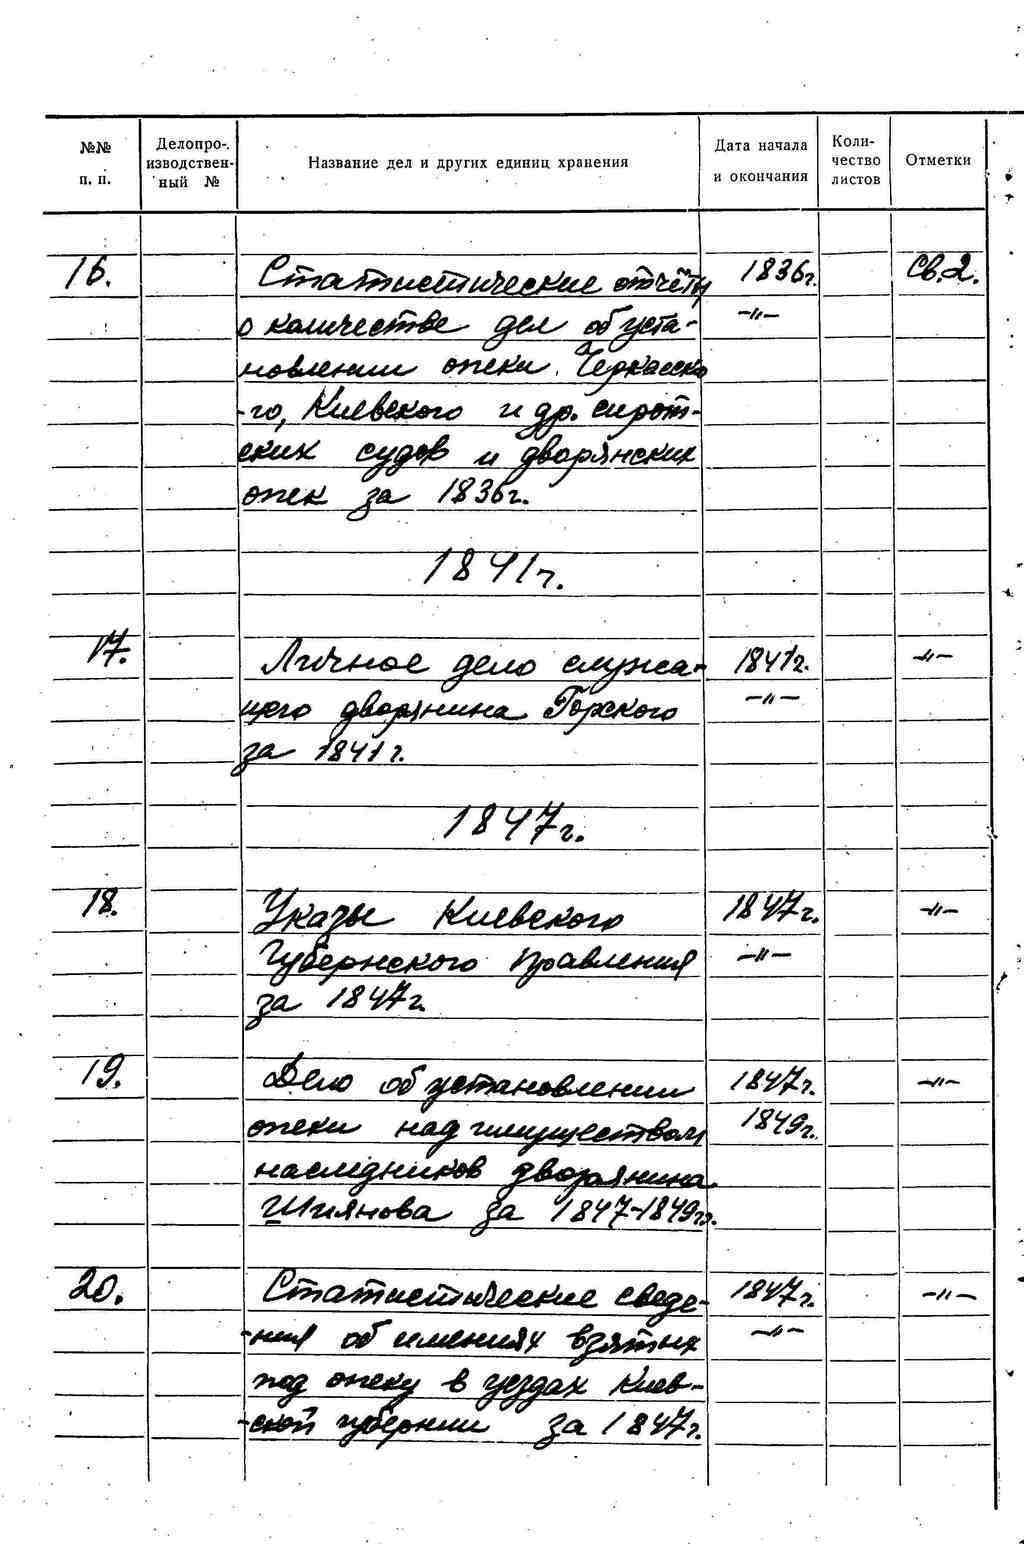 №№ п. п. Делопроизводственный № Название дел и других единиц хранения Дата начала и окончания Количество листов Отметки
16. Статистические отчёты 1836г. Св.2.
о количестве дел об уста- -"-
новлении опеки Черкасско
-го, Киевского и др. сирот-
ских судов и дворянских
опек за 1836г.
1841г.
17. Личное дело служа- 1841г. -"-
щего дворянина Горского -"-
за 1841г.
1847г.
18. Указы Киевского 1847г. -"-
Губернского Правления -"-
за 1847г.
19. Дело об установлении 1847г. -"-
опеки над имуществом 1849г.
наследников дворянина
Шиянова за 1847-1849гг.
20. Статистические сведе- 1847г. -"-
-ния об имениях взятых -"-
под опеку в уездах Киев-
-ской губернии за 1847г.